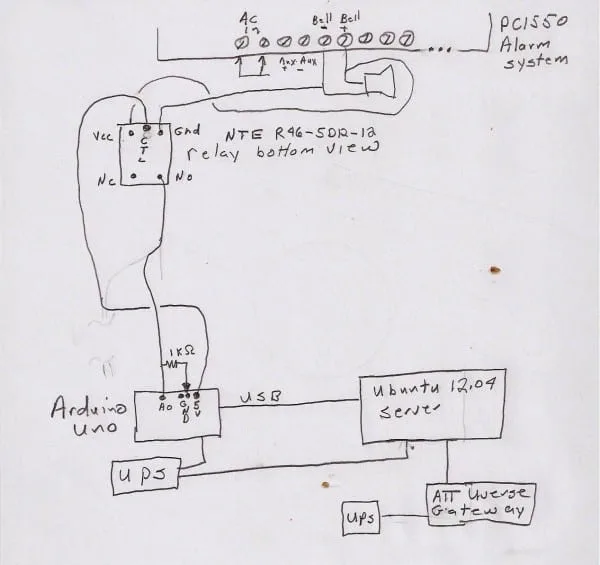 AC
1 2
Bell Bell
- +
PC1550
Alarm
system
Aux Aux
+ -
Vcc
CTL
Gnd
NC
NO
NTE R46-5D12-12
relay bottom view
1KΩ
Arduino
uno
A0
GND
5V
USB
Ubuntu 12.04
Server
UPS
ATT Uverse
Gateway
UPS